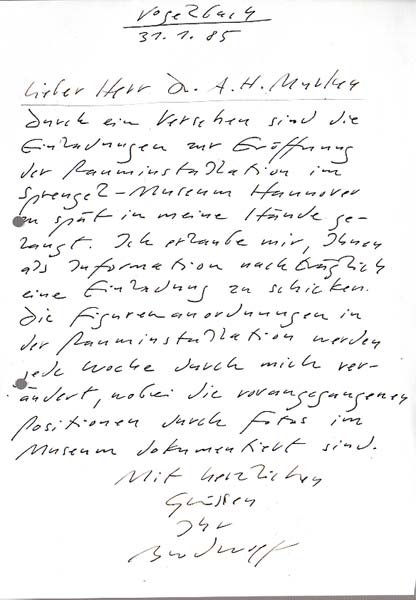 Vogelbach
31.1.85
Lieber Herr Dr. A.H. Murken
durch ein Versehen sind die
Einladungen zur Eröffnung
der Rauminstallation im
Sprengel-Museum Hannover
zu spät in meine Hände ge-
langt. Ich erlaube mir, Ihnen
als Information nachträglich
eine Einladung zu schicken.
Die Figurenanordnungen in
der Rauminstallation werden
jede Woche durch mich ver-
ändert, wobei die vorangegangenen
Positionen durch Fotos im
Museum dokumentiert sind.
Mit herzlichen
Grüssen
Ihr